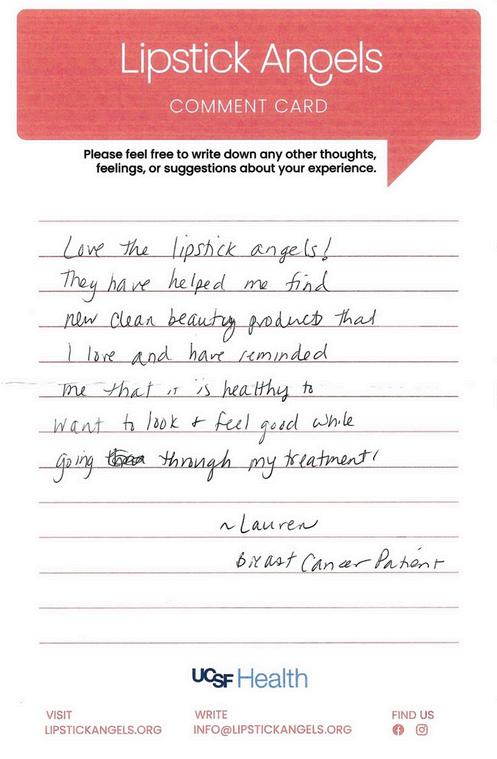 Lipstick Angels
COMMENT CARD
Please feel free to write down any other thoughts,
feelings, or suggestions about your experience.
Love the lipstick angels!
They have helped me find
new clean beauty products that
I love and have reminded
me that it is healthy to
want to look & feel good while
going through my treatment!
~ Lauren
Breast Cancer Patient
UCSF Health
VISIT WRITE FIND US
LIPSTICKANGELS.ORG INFO@LIPSTICKANGELS.ORG